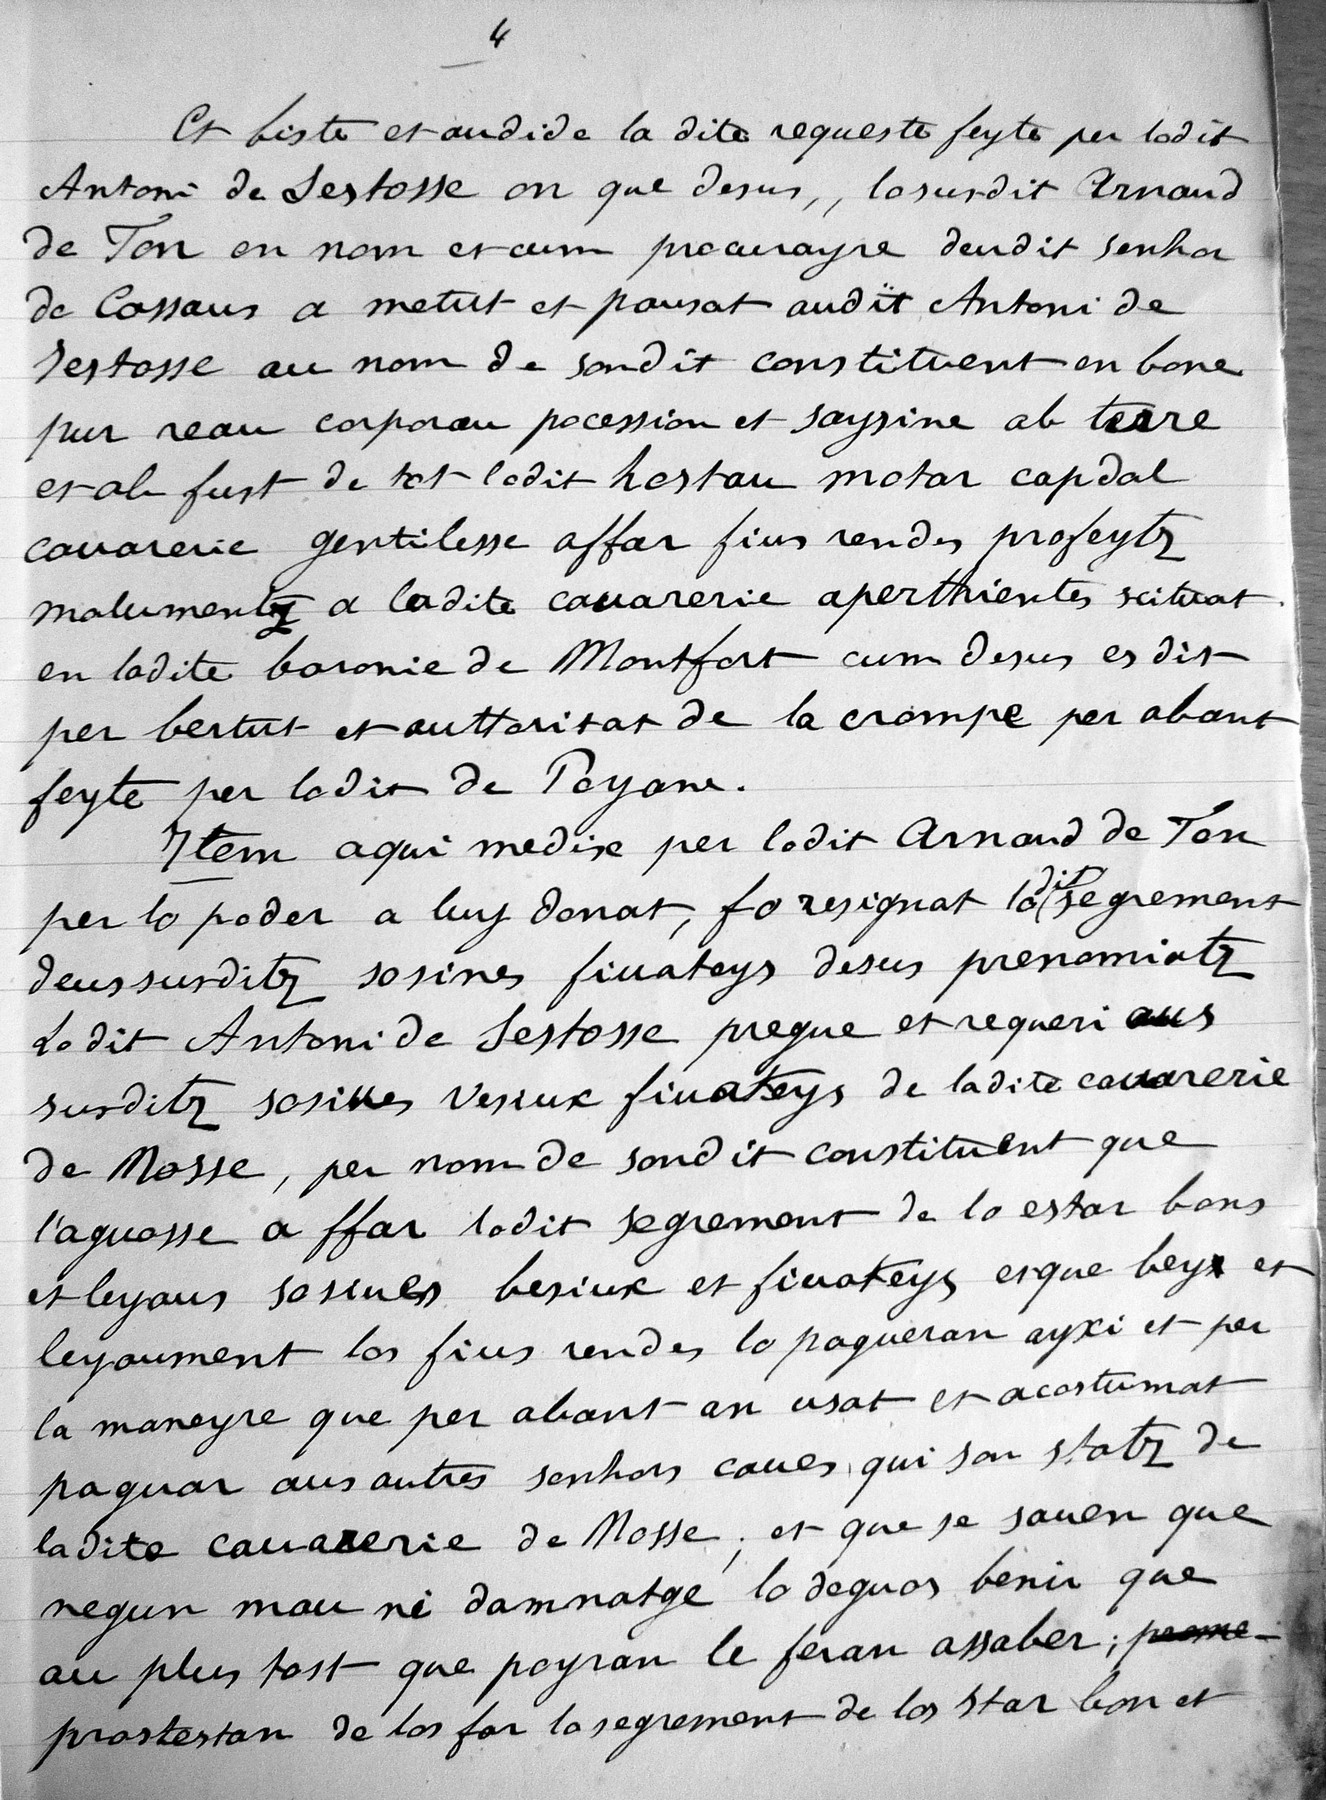 4
Et biste et audide la dite requeste feyte per lodit
Antoni de Sestosse on que desus,, losusdit Arnaud
de Ton en nom et cum procurayre deudit senhor
de Cassaus a metut et pausat audit Antoni de
Sestosse au nom de sondit constituent en bone
pur reau corporau pocession et saysine ab terre
et ab fust de tot lodit hostau motar capdal
cauarerie gentilesse affar fius rendes profeytz
molumentz a ladite cauarerie aperthientes scituat
en ladite baronie de Montfort cum desus es dit
per bertut et auttoritat de la crompe per abant
feyte per lodit de Poyane.
Item aqui medixe per lodit Arnaud de Ton
per lo poder a luy donat, fo resignat lodit segrement
deussusditz sosines fiuateys desus prenomiatz
Lodit Antoni de Sestosse pregue et requeri aus
susditz sosmes vesiux fiuateys de ladite cauarerie
de Mosse, per nom de sondit constituent que
l'aguosse a ffar lodit segrement de lo estar bons
et leyaus sosmes besiux et fiuateys et que bey et
leyaument los fius rendes lo pagueran ayxi et per
la maneyre que per abant an usat et acostumat
paguar aus autres senhors caues qui son statz de
ladite cauarerie de Mosse; et que se sauen que
negun mau ni damnatge lo deguos benir que
au plus tost que poyran le feran assaber;
prostestan de los far lo segrement de los star bon et